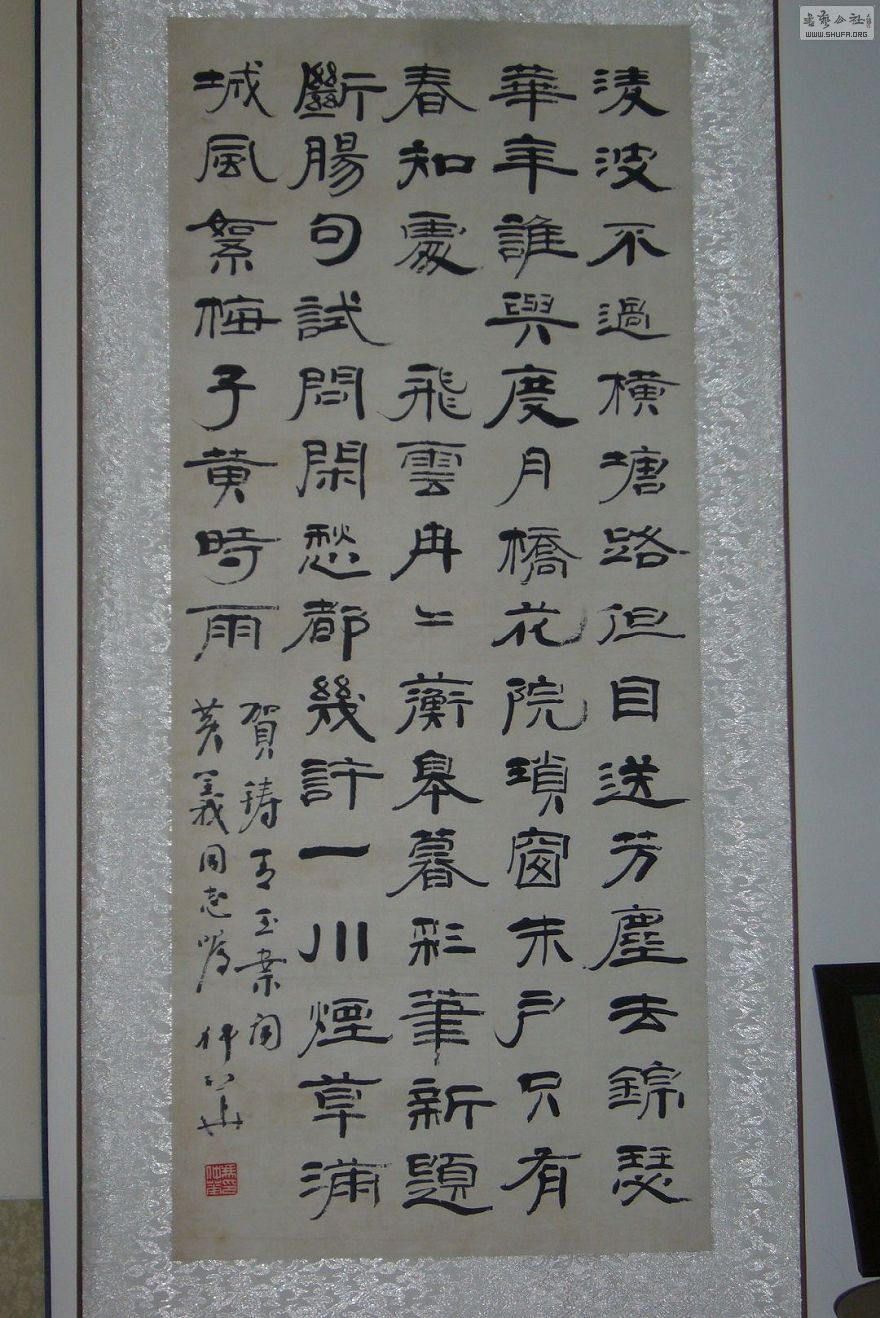 淩波不過橫塘路但目送芳塵去錦瑟
華年誰與度月橋花院瑣窗朱戶只有
春知處 飛雲冉〻蘅皋暮彩筆新題
斷腸句試問閑愁都幾許一川煙草滿
城風絮梅子黃時雨
賀鑄青玉案詞
義同志嘱
書藝公社
WWW.SHUFA.ORG